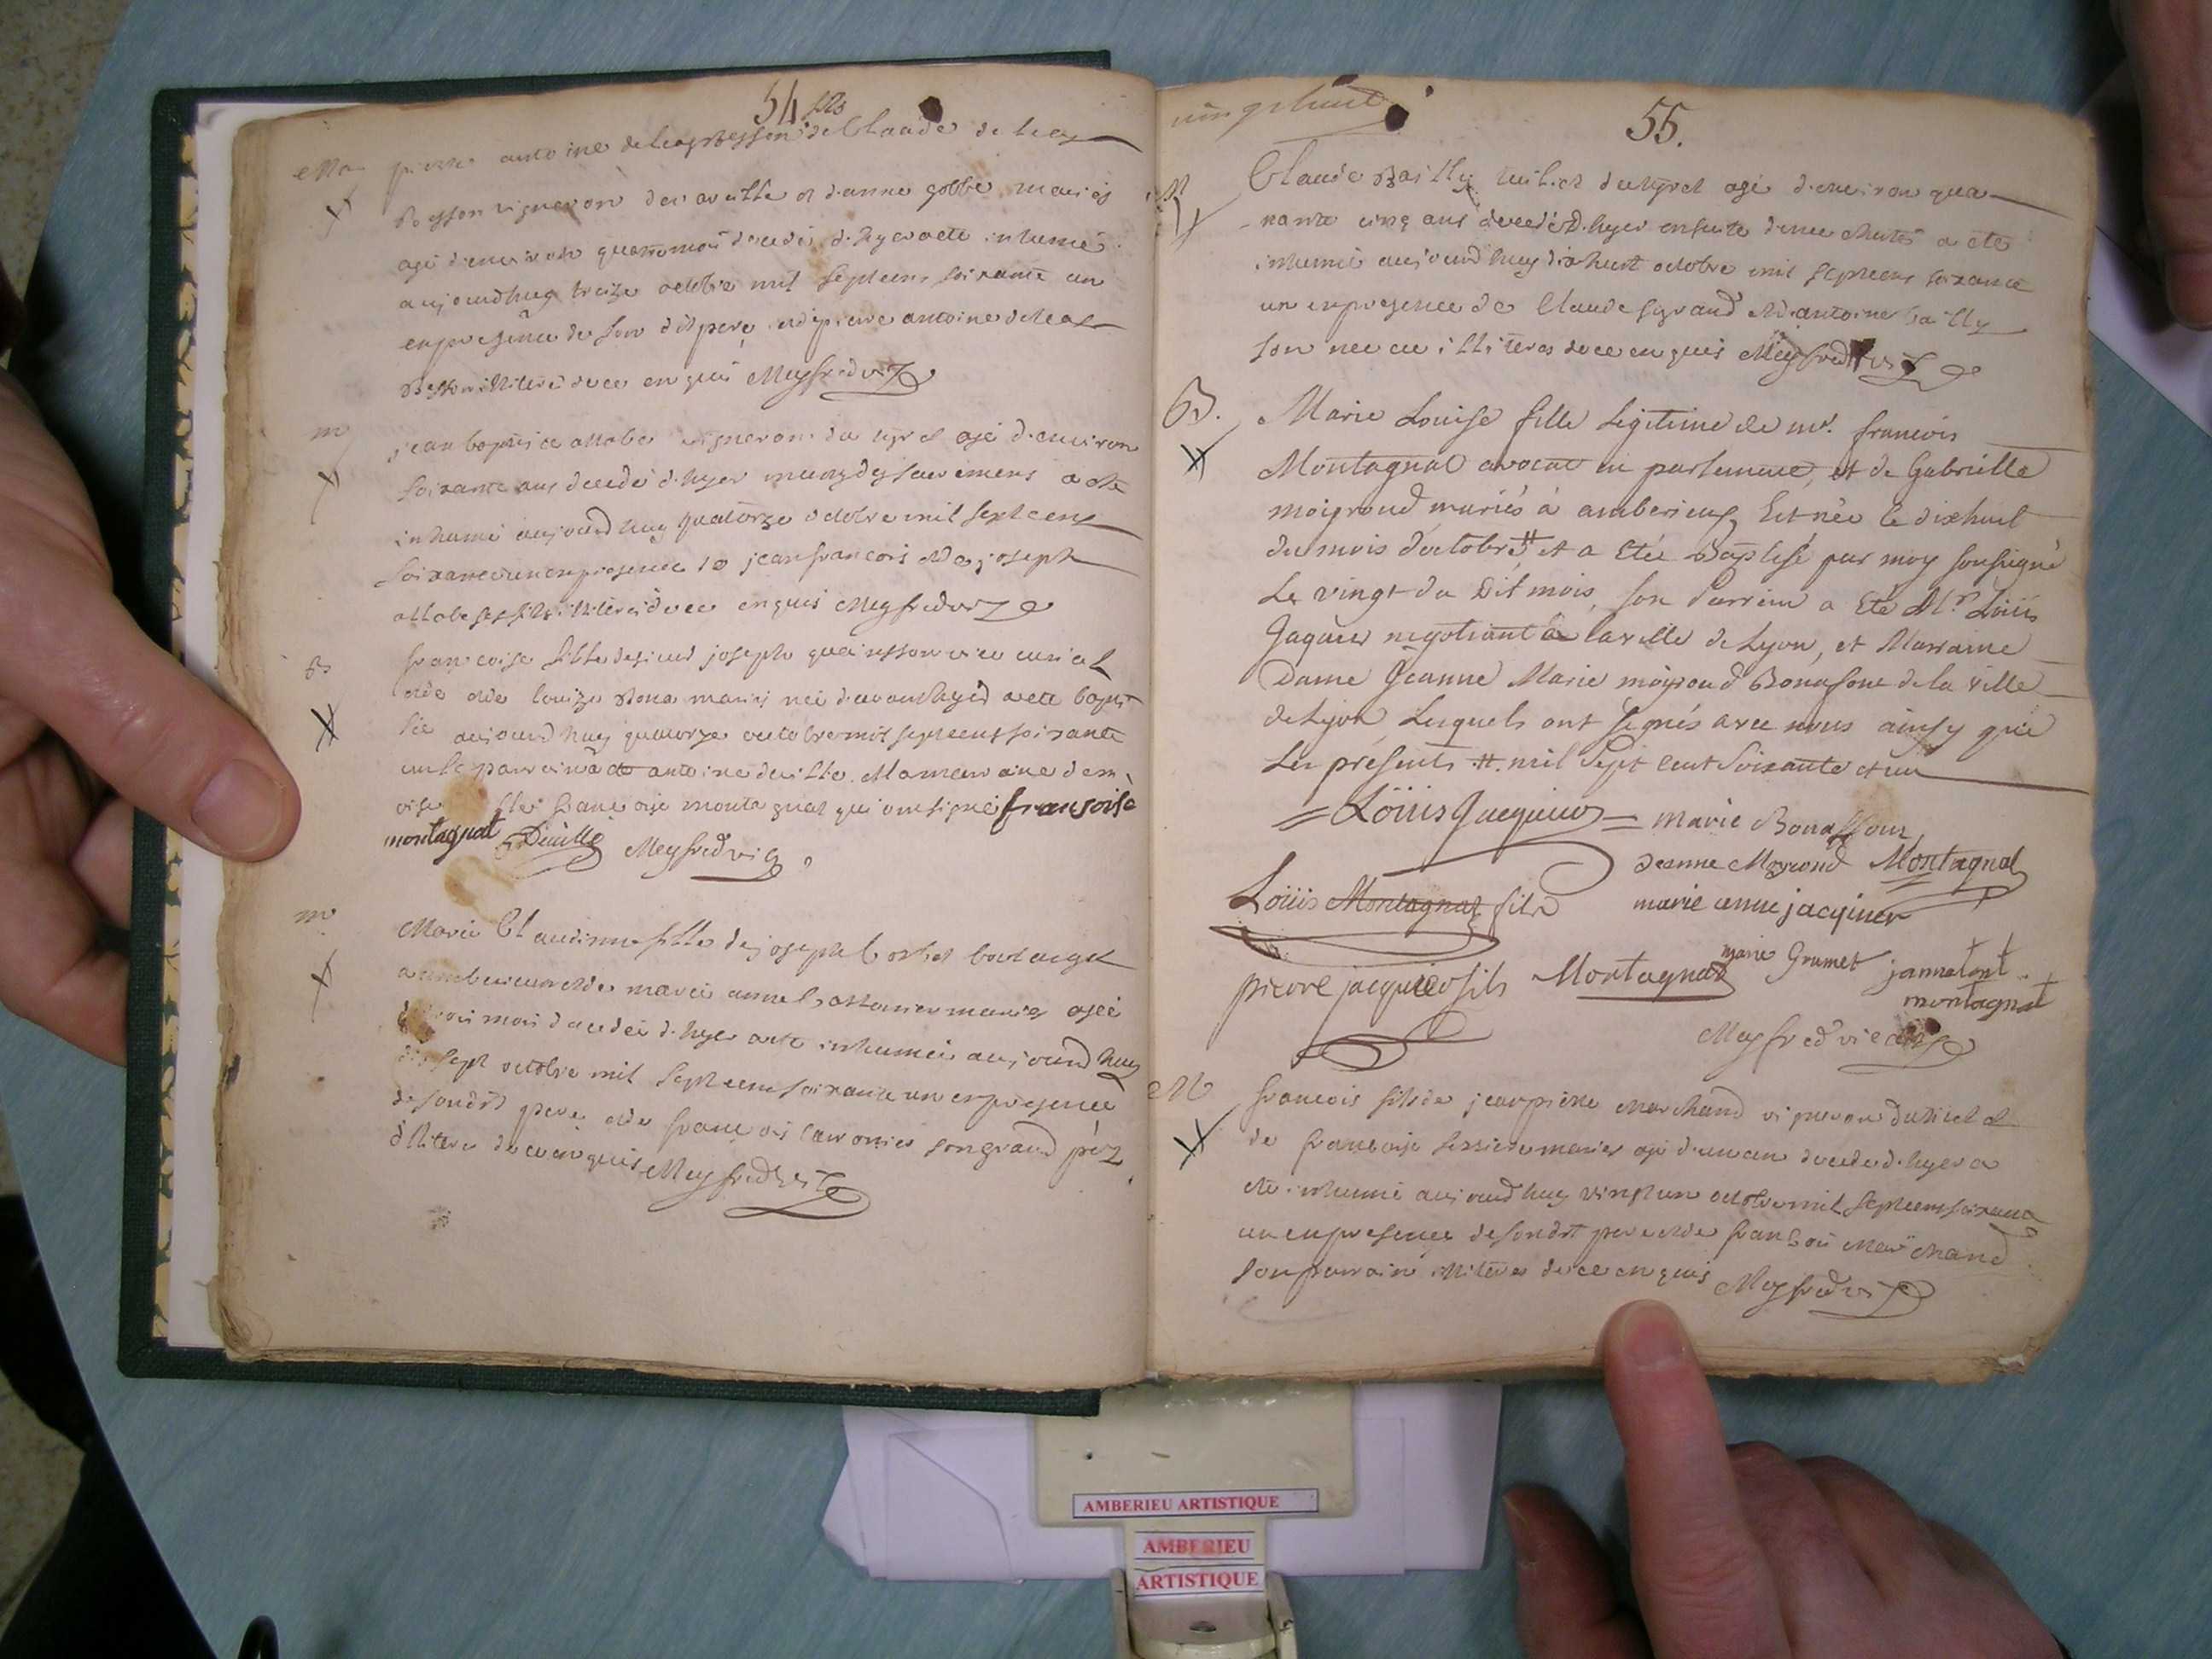 54
pierre antoine de Claude
vigneron et d'anne gobbe mariés
agé d'environ quatre mois decedé d'hyer a eté inhumé
aujourdhuy treize octobre mil septcens soixante un
en presence de son dit pere et de pierre antoine
illiteré de ce enquis Meyfred vic
m
jean baptiste vigneron du agé d'environ
soixante ans decedé d'hyer muny des sacremens a eté
inhumé aujourdhuy quatorze octobre mil septcens
soixante un en presence de jean francois et de joseph
ses fils illiterés de ce enquis Meyfred vic
B
françoise fille de sieur joseph
et de louize mariés née d'avanthyer a eté bapti
sée aujourdhuy quatorze octobre mil septcens soixante
un le parrain a eté antoine deville la marraine dem
françoise montagnat qui ont signé françoise
montagnat Deville Meyfred vic
m
Marie Claudinne fille de joseph boulanger
a amberieu et de marie anne mariés agée
de trois mois decedée d'hyer a eté inhumée aujourdhuy
dix sept octobre mil septcens soixante un en presence
de sondit pere et de françois son grand pere
illiterés de ce enquis Meyfred vic
vingthuit
55.
M
Claude Bailly du tiret agé d'environ qua
rante cinq ans decedé d'hyer ensuite d'une chute a eté
inhumé aujourdhuy dix huit octobre mil septcens soixante
un en presence de Claude et d'antoine bailly
son neveu illiterés de ce enquis Meyfred vic
B.
Marie Louise fille legitime de mr. francois
Montagnat avocat en parlement, et de Gabrielle
moigroud mariés à amberieux Est née le dixhuit
du mois d'octobre # et a Eté Baptisé par moy soussigné
Le vingt du Dit mois, son Parrein a Eté Mr. Loüis
Jaquier negotiant à la ville de Lyon, et Marraine
Dame Jeanne Marie moyroud Bonafons de la ville
de Lyon Lesquels ont signés avec nous ainsy que
Les présents #. mil sept cent soixante et un
Loüis Jacquier marie Bonaffons
Jeanne Moyroud Montagnat
Loüis Montagnat fils marie anne jacquier
pierre jacquier fils Montagnat marie Grumet janneton
montagnat
Meyfred vic
M
francois fils de jean pierre Marchand vigneron du tiret et
de françoise mariés agé d'un an decedé d'hyer a
eté inhumé aujourdhuy vingt un octobre mil septcens soixante
un en presence de sondit pere et de françois Marchand
son parrain illiterés de ce enquis Meyfred vic
AMBERIEU ARTISTIQUE
AMBERIEU
ARTISTIQUE